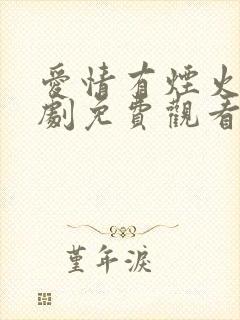 愛情有煙火
劇免費觀看
堇年淚